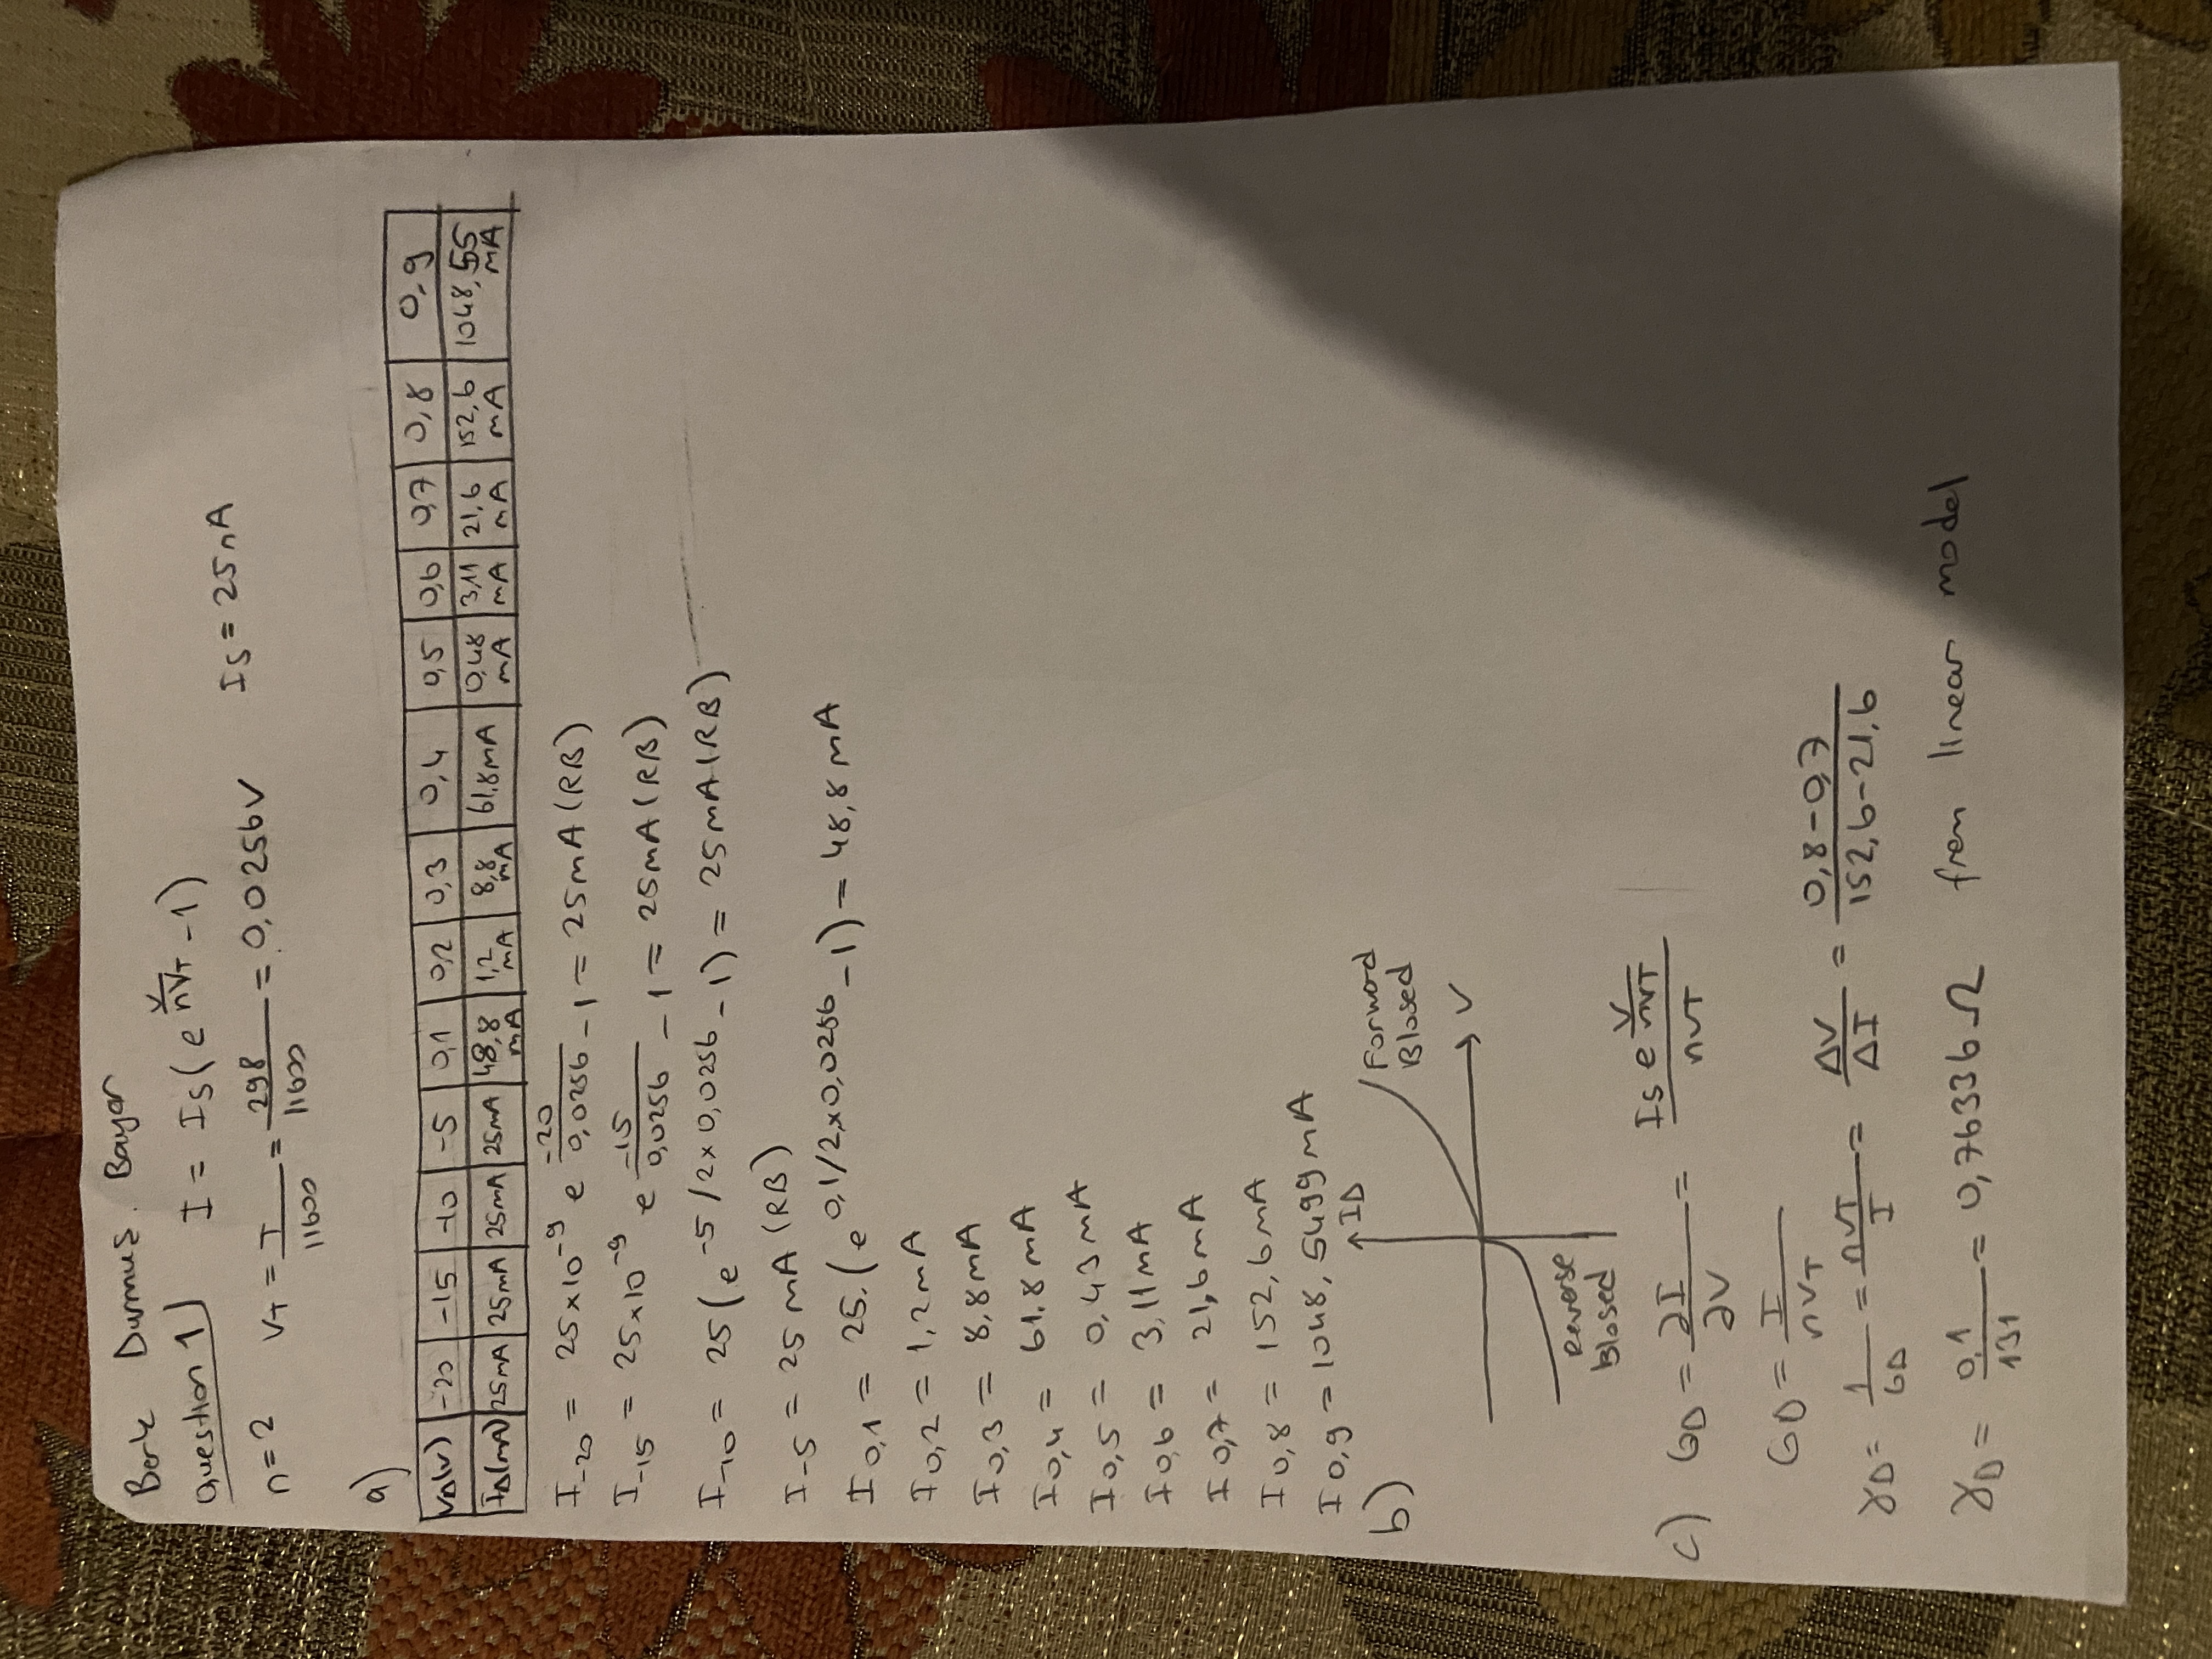 Berk Durmuş Bayar
Question 1) I = Is(e^V/nVT - 1)
n=2 VT = T/11600 = 298/11600 = 0,0256V Is = 25nA
a)
VD(V) -20 -15 -10 -5 0,1 0,2 0,3 0,4 0,5 0,6 0,7 0,8 0,9
ID(mA) 25mA 25mA 25mA 25mA 48,8 mA 1,2 mA 8,8 mA 61,8mA 0,48 mA 3,11 mA 21,6 mA 152,6 mA 1048,55 mA
I-20 = 25x10^-9 e^-20/0,0256 - 1 = 25mA (RB)
I-15 = 25x10^-9 e^-15/0,0256 - 1 = 25mA (RB)
I-10 = 25(e^-5/2x0,0256 - 1) = 25mA (RB)
I-5 = 25mA (RB)
I0,1 = 25.(e^0,1/2x0,0256 - 1) = 48,8 mA
I0,2 = 1,2mA
I0,3 = 8,8mA
I0,4 = 61,8 mA
I0,5 = 0,43 mA
I0,6 = 3,11mA
I0,7 = 21,6mA
I0,8 = 152,6mA
I0,9 = 1048,5499mA
b) ID
Forward
Biased
V
Reverse
Biased
c) GD = ∂I/∂V = Is e^V/nVT / nVT
GD = I/nVT
γD = 1/GD = nVT/I = ΔV/ΔI = 0,8-0,7/152,6-21,6
γD = 0,1/131 = 0,76336Ω from linear model